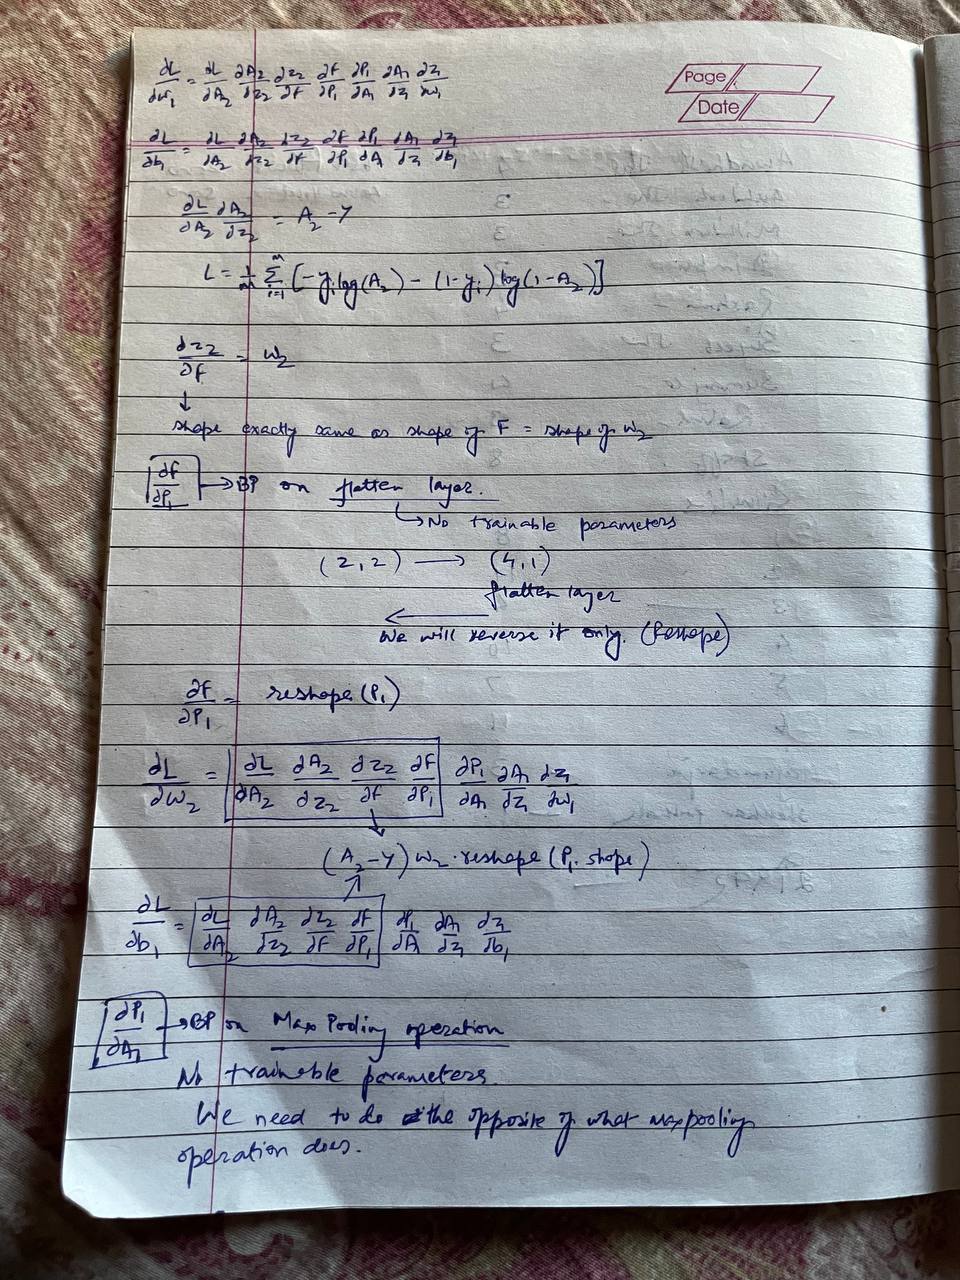 Page
Date
∂L/∂w₁ = ∂L/∂A₂ ∂A₂/∂z₂ ∂z₂/∂f ∂f/∂P₁ ∂P₁/∂A₁ ∂A₁/∂z₁ ∂z₁/∂w₁
∂L/∂b₁ = ∂L/∂A₂ ∂A₂/∂z₂ ∂z₂/∂f ∂f/∂P₁ ∂P₁/∂A₁ ∂A₁/∂z₁ ∂z₁/∂b₁
∂L/∂A₂ ∂A₂/∂z₂ = A₂ - Y
L = 1/m Σᵢ₌₁ᵐ [-yᵢ log(A₂) - (1-yᵢ) log(1-A₂)]
∂z₂/∂f = w₂
↓
shape exactly same as shape of F = shape of w₂
∂f/∂P₁ → BP on flatten layer.
↳ No trainable parameters
(2,2) → (4,1)
flatten layer
←
We will reverse it only. (Reshape)
∂f/∂P₁ = reshape (P₁)
∂L/∂w₂ = ∂L/∂A₂ ∂A₂/∂z₂ ∂z₂/∂f ∂f/∂P₁ ∂P₁/∂A₁ ∂A₁/∂z₁ ∂z₁/∂w₁
↓
(A₂-Y) w₂.reshape (P₁.shape)
∂L/∂b₁ = ∂L/∂A₂ ∂A₂/∂z₂ ∂z₂/∂f ∂f/∂P₁ ∂P₁/∂A₁ ∂A₁/∂z₁ ∂z₁/∂b₁
∂P₁/∂A₁ → BP on Max Pooling operation
No trainable parameters.
We need to do the opposite of what maxpooling
operation does.